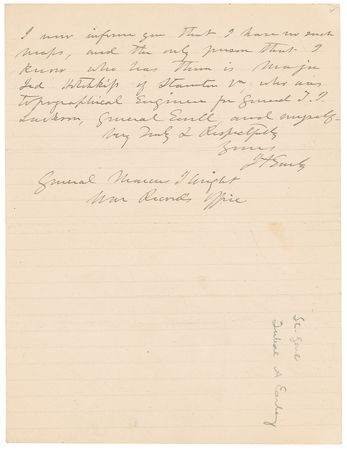 I now inform you that I have no such
maps, and the only person that I
know who has them is Major
Jed Hotchkiss of Staunton Va. who was
topographical Engineer for General T. J.
Jackson, General Ewell, and myself-
Very Truly & Respectfully
Yours
J A Early
General Marcus J Wright
War Records Office
Jubal A Early